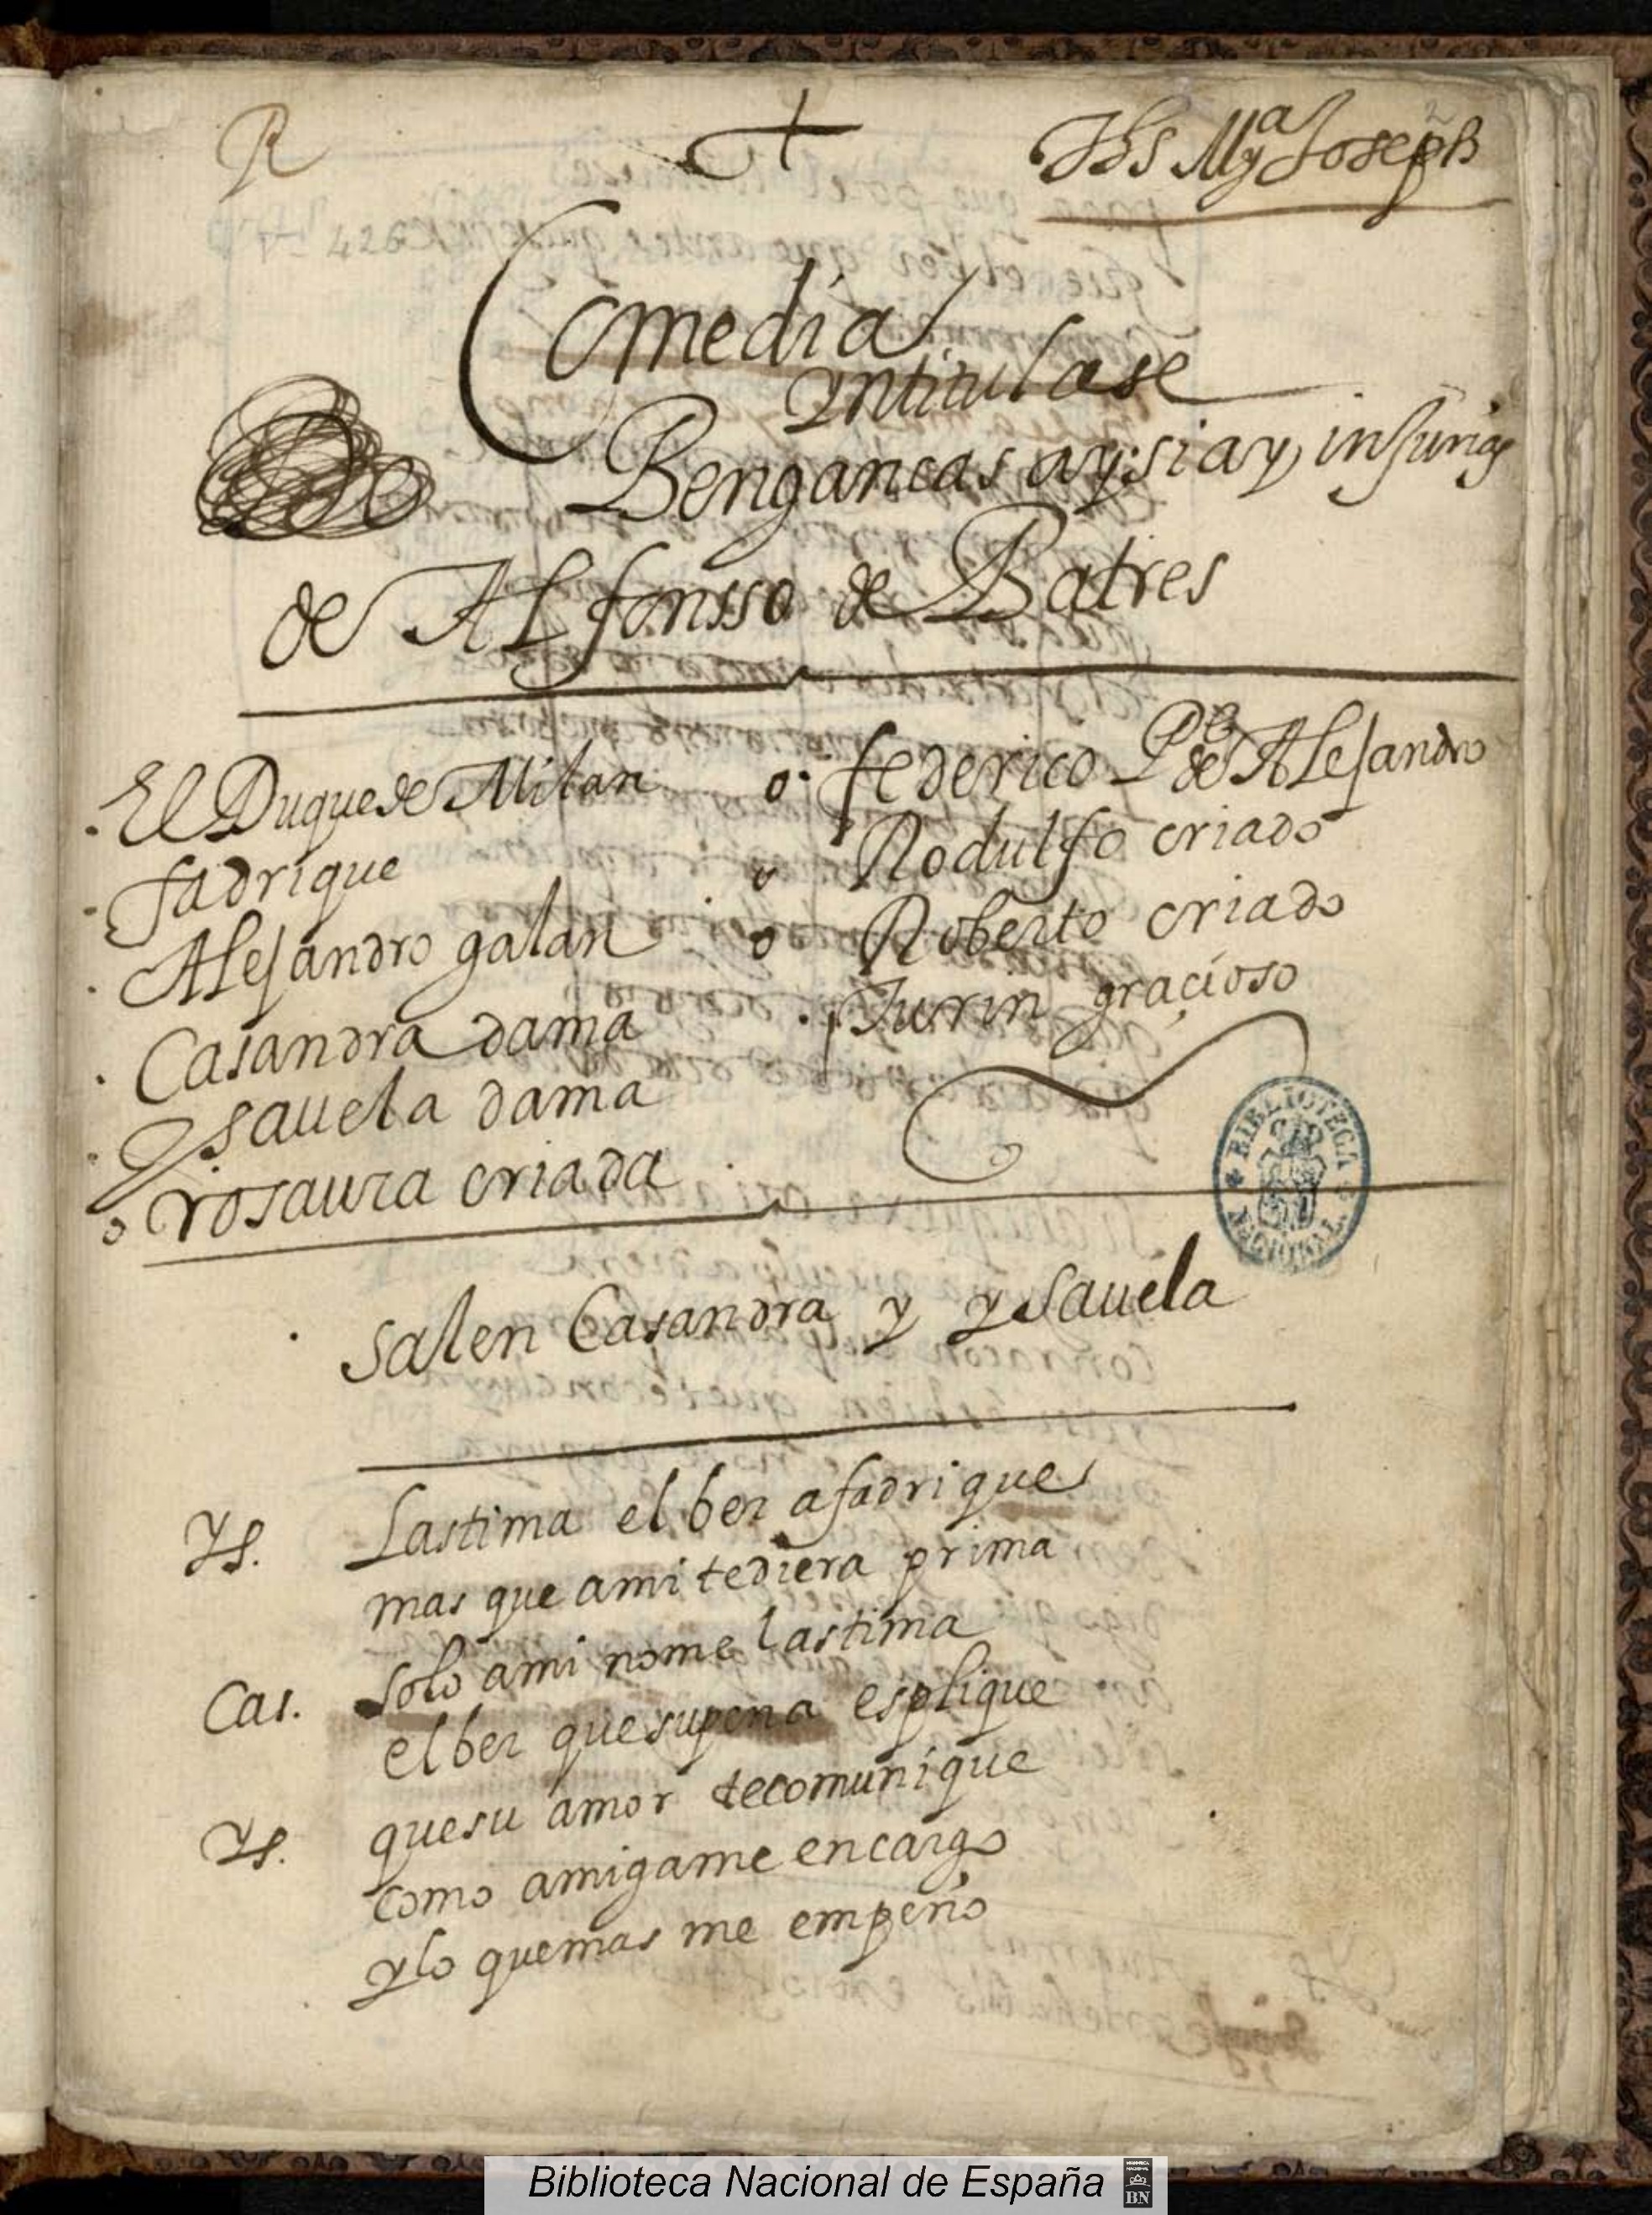 R
Jhs Mª Joseph
Comedia
yntitulase
Bengancas ay si ay injurias
de Alfonsso de Batres
El Duque de Milan
fadrique
Alejandro galan
Casandra dama
ysauela dama
rosaura criada
federico Pe de Alejandro
Rodulfo criado
Roberto criado
Turin graçioso
BIBLIOTECA NACIONAL
salen Casandra y ysauela
Ys. Lastima el ber a fadrique
mas que ami tediera prima
Cas. solo ami nome lastima
el ber que su pena esplique
Ys. que su amor te comunique
como amiga me encargo
y lo que mas me empeño
Biblioteca Nacional de España
BN